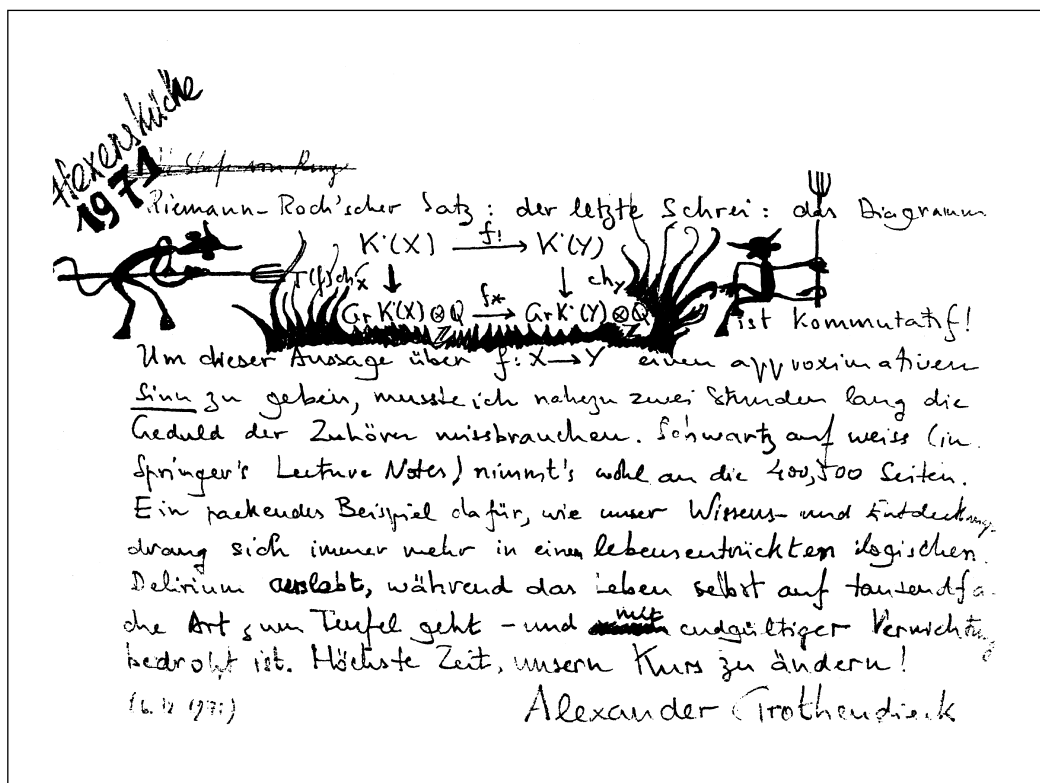 Hexenküche
1971
Riemann-Roch'scher Satz: der letzte Schrei: das Diagramm
K˙(X) f! → K˙(Y)
T(f)ch_X ↓ ↓ ch_Y
Gr K˙(X)⊗Q f* → Gr K˙(Y)⊗Q
Z Z
ist kommutatif!
Um dieser Aussage über f: X → Y einen approximativen
Sinn zu geben, musste ich nahezu zwei Stunden lang die
Geduld der Zuhörer missbrauchen. Schwartz auf weiss (in
Springer's Lecture Notes) nimmt's wohl an die 400,500 Seiten.
Ein packendes Beispiel dafür, wie unser Wissens- und Entdeckungs
drang sich immer mehr in einem lebensentrückten logischen
Delirium auslebt, während das Leben selbst auf tausendfa
che Art zum Teufel geht - und mit endgültiger Vernichtung
bedroht ist. Höchste Zeit, unsern Kurs zu ändern!
Alexander Grothendieck